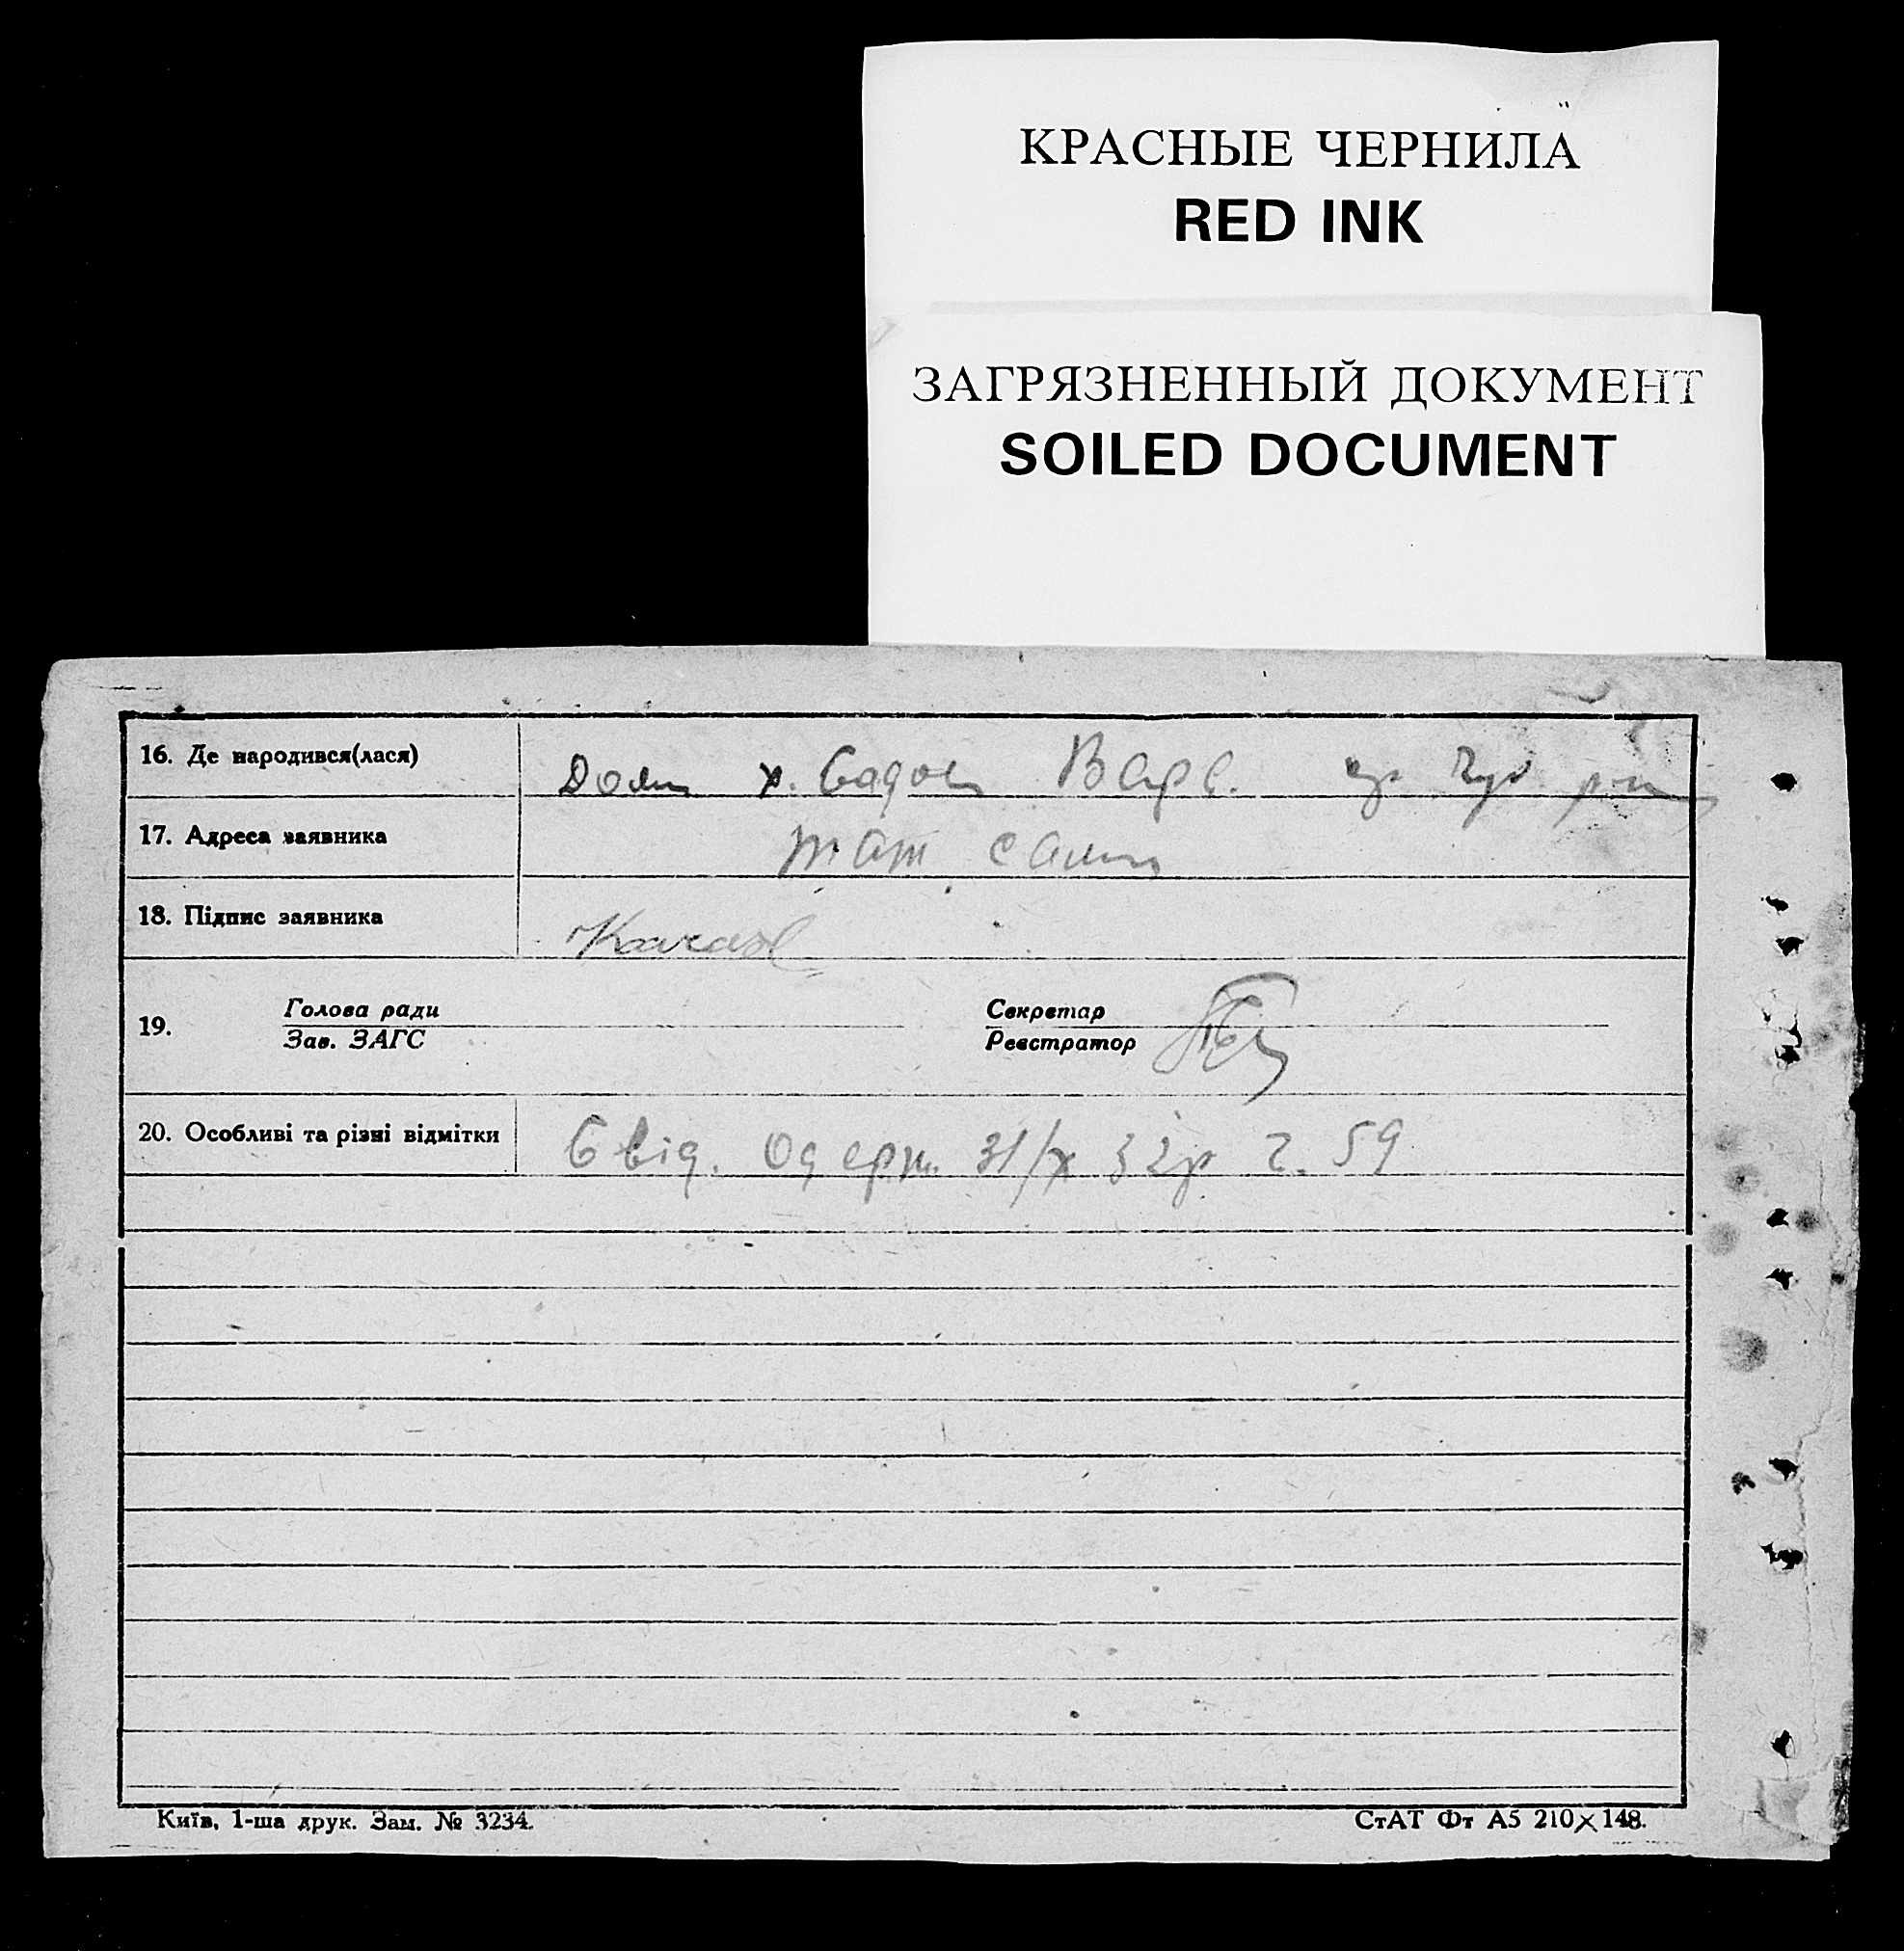 КРАСНЫЕ ЧЕРНИЛА
RED INK
ЗАГРЯЗНЕННЫЙ ДОКУМЕНТ
SOILED DOCUMENT
16. Де народився(лася) Дома х.
17. Адреса заявника там само
18. Підпис заявника
19. Голова ради Секретар
Зав. ЗАГС Реєстратор
20. Особливі та різні відмітки Свід. Одерж. 31/X 32р ч. 59
Київ, 1-ша друк. Зам. № 3234.
СтАТ Фт А5 210×148.